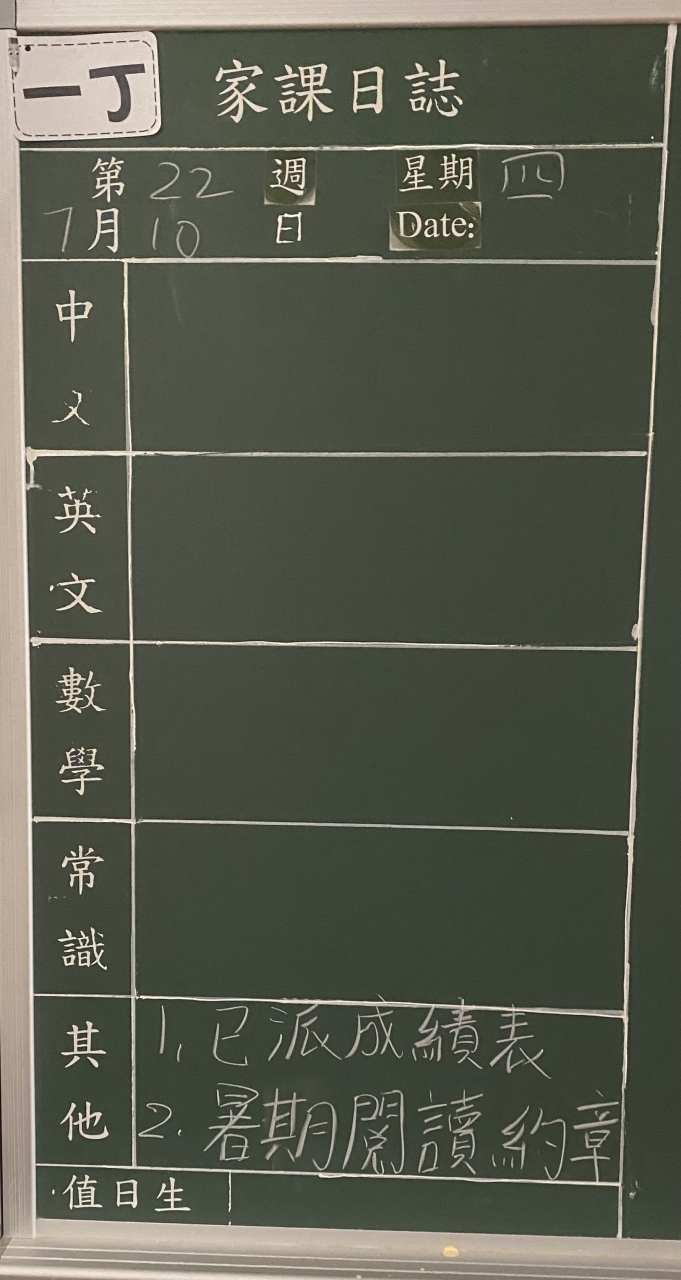 一丁
家課日誌
第 22 週 星期 四
7月 10 日 Date:
中文
英文
數學
常識
其他
1. 已派成績表
2. 暑期閱讀約章
值日生